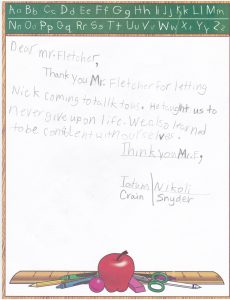 Aa Bb Cc Dd Ee Ff Gg Hh Ii Jj Kk Ll Mm
Nn Oo Pp Qq Rr Ss Tt Uu Vv Ww Xx Yy Zz
Dear mr. Fletcher,
Thank you Mr. Fletcher for letting
Nick coming to tallk to us. He taught us to
never give up on life. We also learned
to be confident with our selves.
Think you Mr. F,
Tatum Nikoli
Crain Snyder